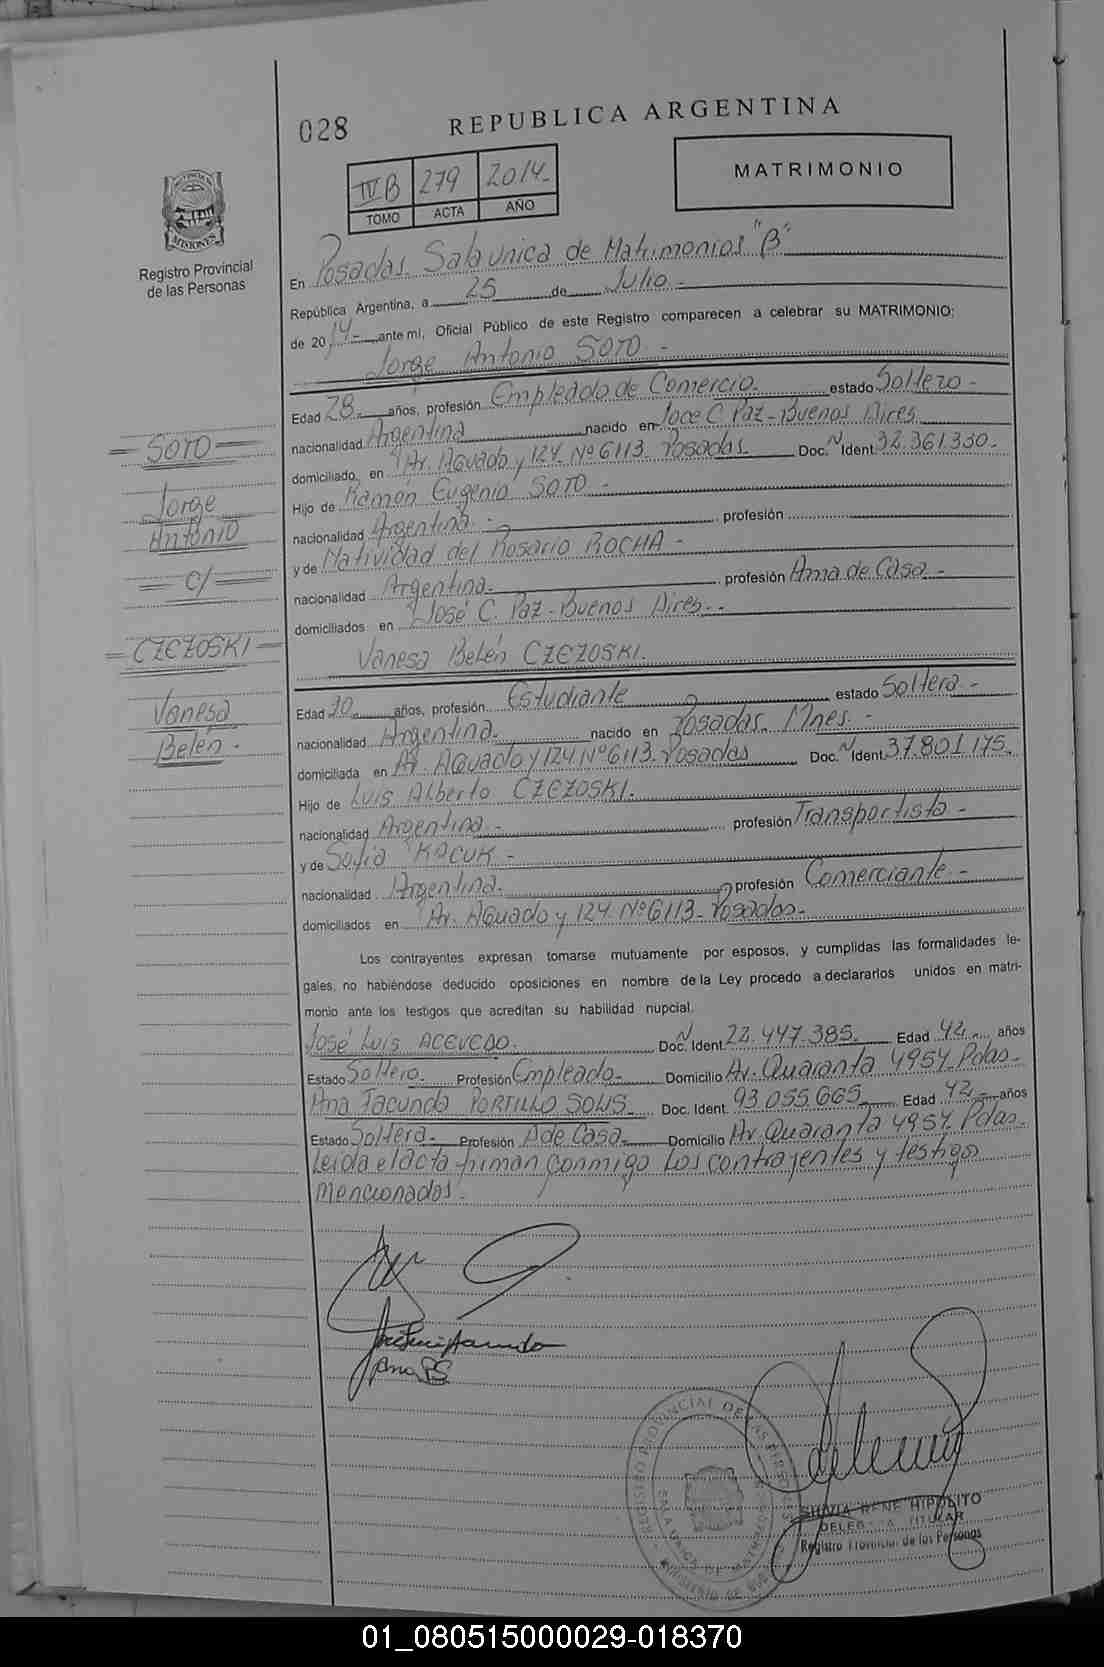 028
REPUBLICA ARGENTINA
MATRIMONIO
IV B 279 2014-
TOMO ACTA AÑO
MISIONES
Registro Provincial
de las Personas
En Posadas Sala Unica de Matrimonios "B"
República Argentina, a 25 de Julio -
de 2014- ante mi, Oficial Público de este Registro comparecen a celebrar su MATRIMONIO:
Jorge Antonio SOTO -
Edad 28 años, profesión Empleado de Comercio. estado Soltero -
nacionalidad Argentina nacido en Jose C. Paz - Buenos Aires
domiciliado, en Av. Aguado y 124 Nº 6113 Posadas Doc. N Ident. 32.361.330-
Hijo de Ramón Eugenio SOTO -
nacionalidad Argentina - profesión
y de Natividad del Rosario ROCHA -
nacionalidad Argentina. profesión Ama de Casa -
domiciliados en José C. Paz - Buenos Aires -
Vanesa Belén CZEZOSKI.
Edad 20 años, profesión Estudiante estado Soltera -
nacionalidad Argentina. nacido en Posadas. Mnes. -
domiciliada en Av. Aguado y 124 Nº 6113 - Posadas Doc. N Ident. 37.801.175.
Hijo de Luis Alberto CZEZOSKI.
nacionalidad Argentina - profesión Transportista -
y de Sofia KACUK -
nacionalidad Argentina. profesión Comerciante -
domiciliados en Av. Aguado y 124 Nº 6113 - Posadas -
Los contrayentes expresan tomarse mutuamente por esposos, y cumplidas las formalidades le-
gales, no habiéndose deducido oposiciones en nombre de la Ley procedo a declararlos unidos en matri-
monio ante los testigos que acreditan su habilidad nupcial.
José Luis ACEVEDO. Doc. N Ident. 22.447.385. Edad 42 años
Estado Soltero. Profesión Empleado - Domicilio Av. Quaranta 4954 Pdas -
Ana Facunda PORTILLO SOLIS Doc. Ident. 93.055.665 Edad 42 - años
Estado Soltera - Profesión A de Casa - Domicilio Av. Quaranta 4954 Pdas -
Leida el acta firman conmigo los contrayentes y testigos
mencionados.
= SOTO =
Jorge
Antonio
= c/ =
= CZEZOSKI =
Vanesa
Belén -
Ana PS
REGISTRO PROVINCIAL DE LAS PERSONAS
SILVIA RENE HIPOLITO
DELEGADA TITULAR
Registro Provincial de las Personas
01_080515000029-018370